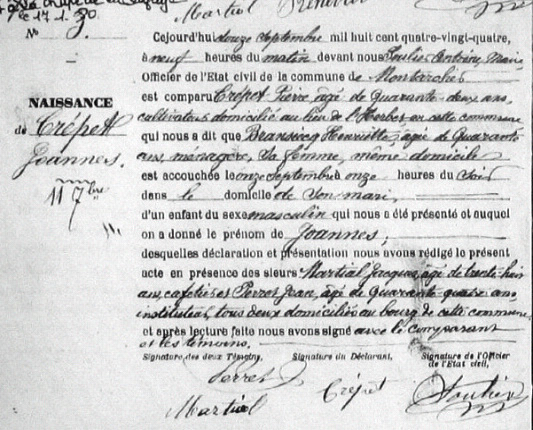 Martial
ce 17.1.80
No 3.
NAISSANCE
de Crépet
Joannes.
11 7bre
Cejourd'hui douze septembre mil huit cent quatre-vingt-quatre,
à neuf heures du matin devant nous Soulier Antoine, Maire
Officier de l'Etat civil de la commune de Montarcher
est comparu Crépet Pierre, âgé de quarante-deux ans,
cultivateur domicilié au lieu de l'Herbet en cette commune
qui nous a dit que Henriette, âgée de Quarante
ans, ménagère, sa femme, même domicile
est accouchée le onze septembre à onze heures du Soir
dans le domicile de Son mari,
d'un enfant du sexe masculin qui nous a été présenté et auquel
on a donné le prénom de Joannes,
desquelles déclaration et présentation nous avons rédigé le présent
acte en présence des sieurs Martial Jacques, âgé de trente-huit
ans, cafetier et Perret Jean, âgé de quarante-quatre ans
instituteur, tous deux domiciliés au bourg de cette commune
et après lecture faite nous avons signé avec le comparant
et les témoins.
Signature des deux Témoins, Signature du Déclarant, Signature de l'Officier
de l'Etat civil,
Perret
Crépet
Soulier
Martial